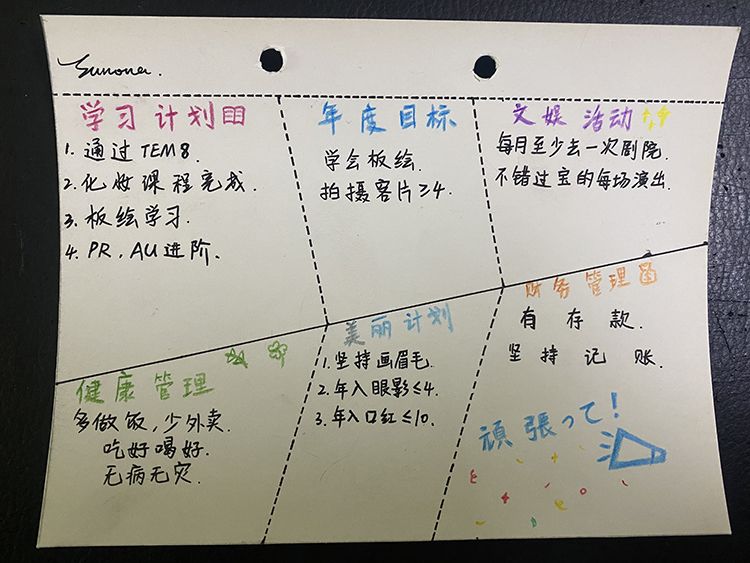 Sunona.
学习计划
1. 通过TEM8.
2. 化妆课程完成.
3. 板绘学习.
4. PR, AU进阶.
年度目标
学会板绘.
拍摄客片≥4.
文娱活动
每月至少去一次剧院.
不错过宝的每场演出.
健康管理
多做饭,少外卖.
吃好喝好.
无病无灾.
美丽计划
1. 坚持画眉毛.
2. 年入眼影≤4.
3. 年入口红≤10.
财务管理
有存款.
坚持记账.
頑張って!